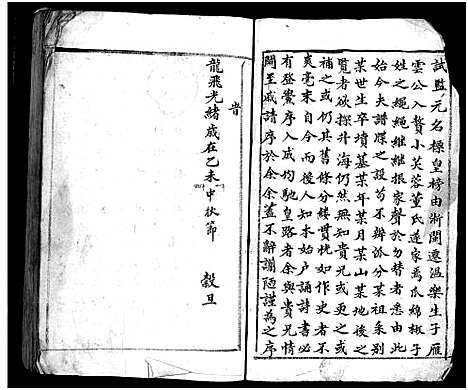 試監元名標皇榜由浙閩遷温樂生子雁
雲公入贅小芙蓉董氏遂家焉瓜緜椒子
姓之繩繩繼繼振家聲於勿替者悉由此
始今夫譜牒之設苟不辨派分某祖承某
某世生卒墳墓某年某月某山某地後之
覽者欲探升海仍然無知貴兄或更之或
補之或仍其舊條分縷貫恍如作史者不
爽毫末自今而後人知木始户誦詩書間
有登黌序入成均馳皇路者余與貴兄情
關至戚請序於余余蓋不辭謭陋謹為之序
昔
龍飛光緒歲在乙未中秋節 穀旦